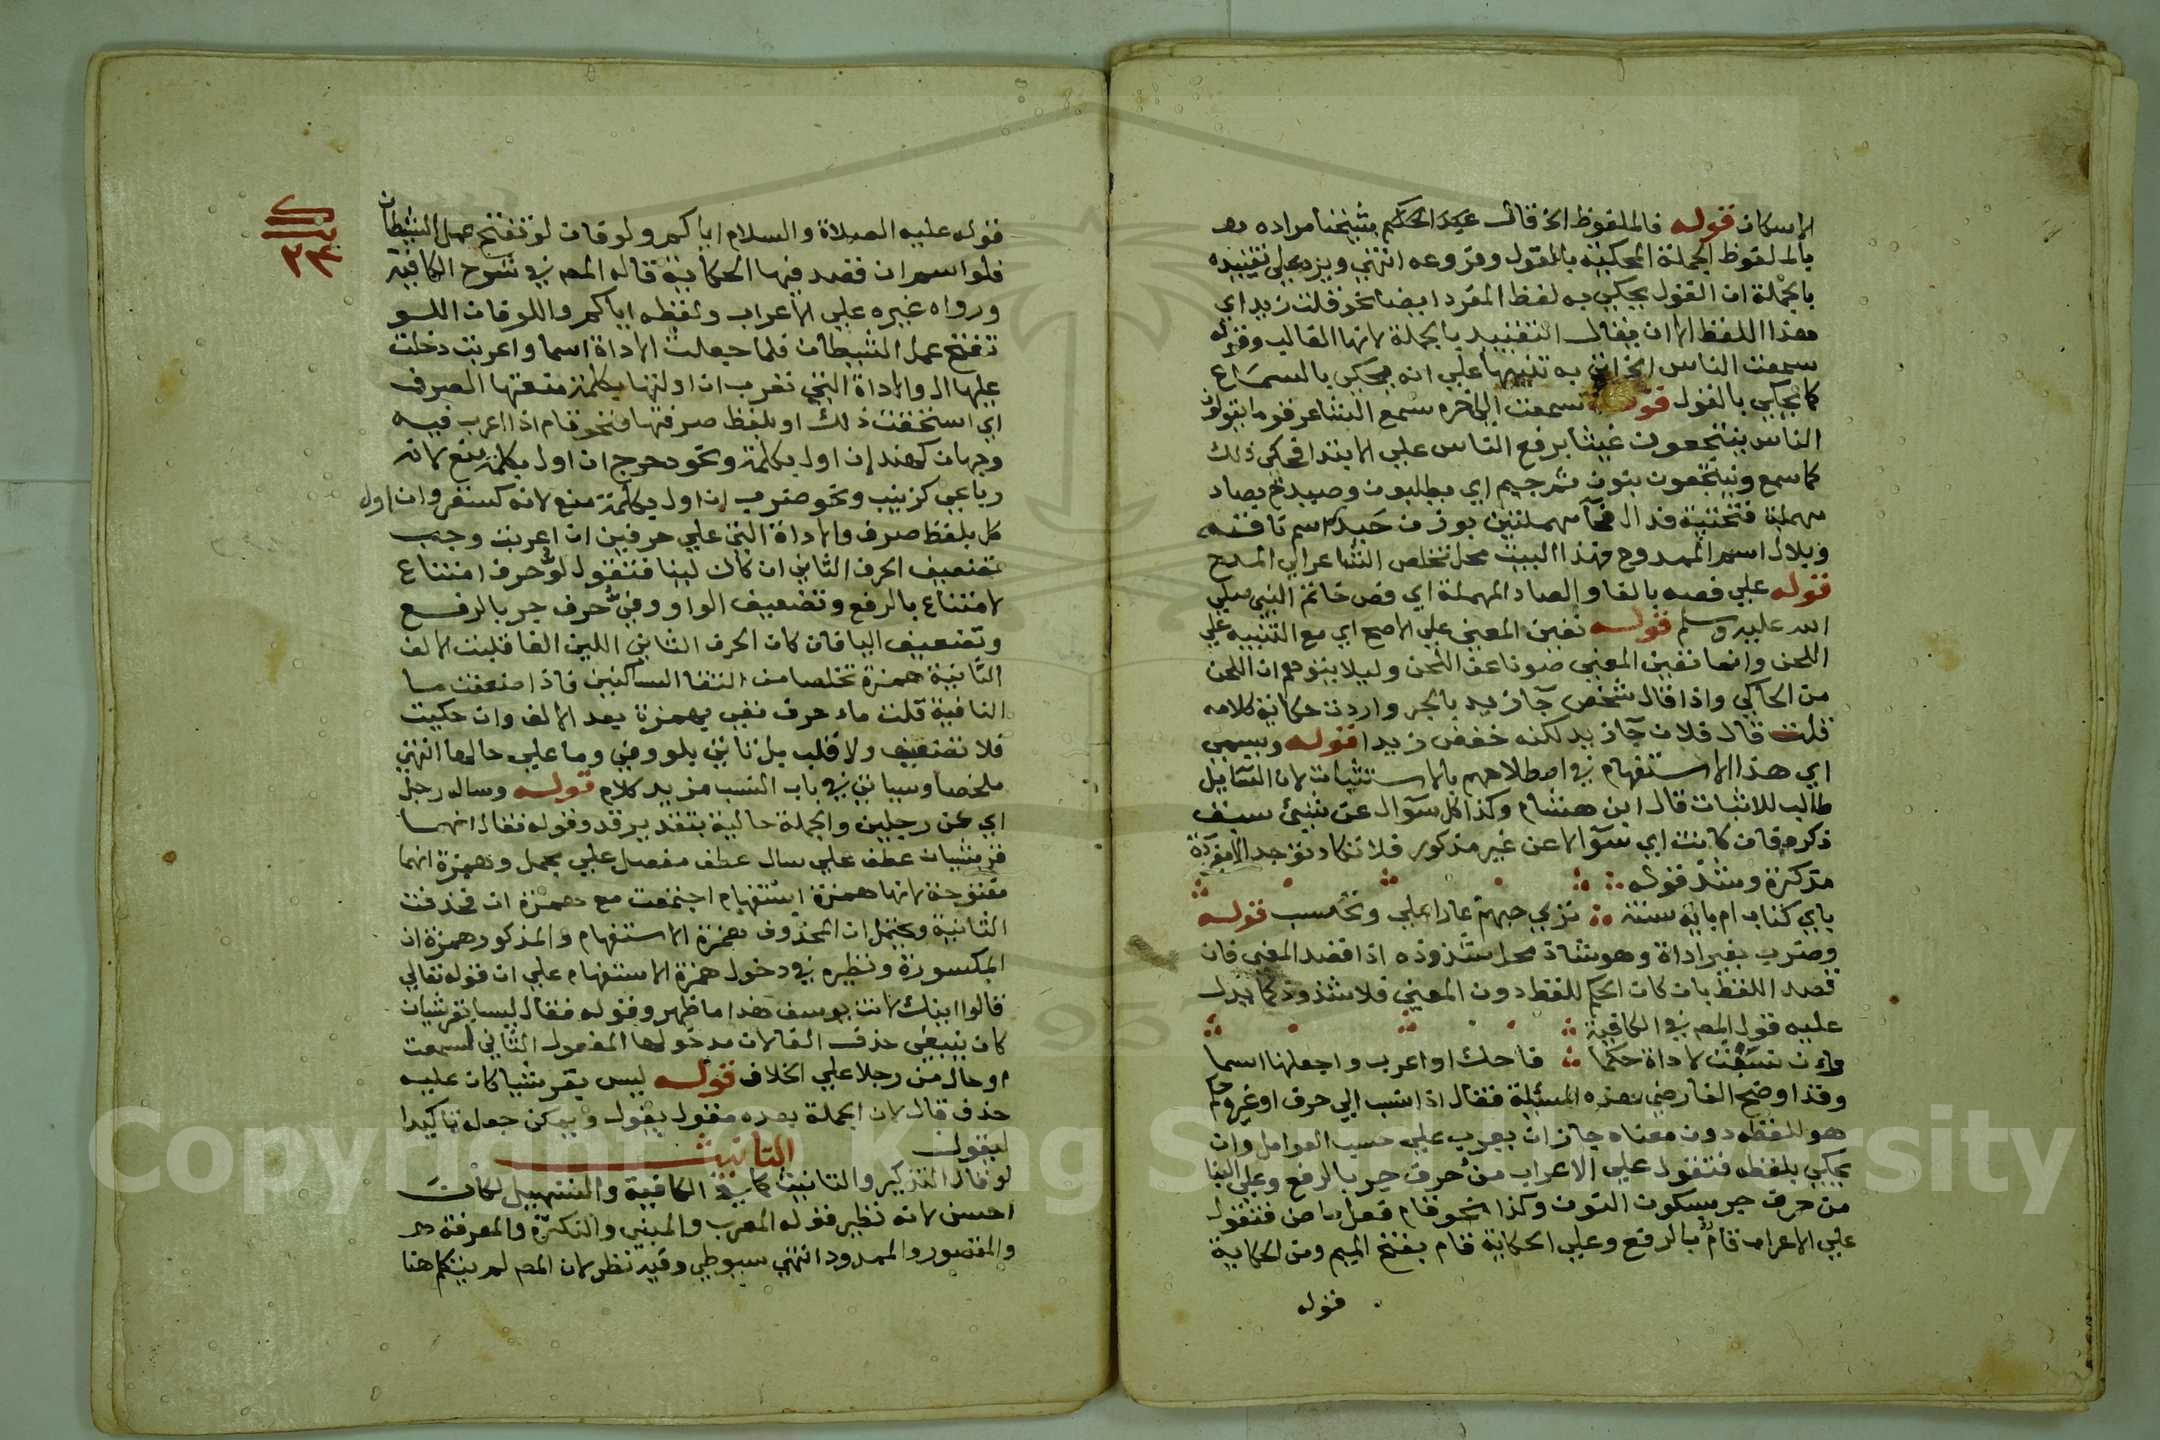 الاسكان قوله فالملفوظ الخ قال عبد الحكيم شيخنا مراده به
بالملفوظ الجملة المحكية بالقول وفروعه انتهي ويرد علي تقييده
بالجملة ان القول يحكي به لفظ المفرد ايضا نحو قلت زيد اي
هذا اللفظ الا ان يقال التقييد بالجملة لانها الغالب وقوله
سمعت الناس الخ اتي به تنبيها علي انه يحكي بالسماع
كما يحكي بالقول قوله سمعت الي اخره سمع الشاعر قوما يقولون
الناس ينتجعون غيثا برفع الناس علي الابتدا فحكي ذلك
كما سمع وينتجعون بنون ثم جيم اي يطلبون وصيدح بصاد
مهملة فتحتية فدال فحآ مهملتين بوزن حيدر اسم ناقته
وبلال اسم الممدوح وهذا البيت محل تخلص الشاعر الي المدح
قوله علي فصه بالفا والصاد المهملة اي فص خاتم النبي صلي
الله عليه وسلم قوله تعين المعني علي الاصح اي مع التنبيه علي
اللحن وانما تعين المعني صونا عن اللحن وليلا يتوهم ان اللحن
من الحاكي واذا قال شخص جآ زيد بالجر واردت حكاية كلامه
قلت قال فلان جآ زيد لكنه خفض زيدا قوله ويسمي
اي هذا الاستفهام في اصطلاحهم بالاستثبات لان القايل
طالب للاثبات قال ابن هشام وكذا كل سوآل عن شيئ سبق
ذكره فان كانت اي سوآلا عن غير مذكور فلا تكاد توجد الا مفردة
مذكرة وشذ قوله
باي كتاب ام باية سنة تري حبهم عارا علي وتحسب قوله
وضرب بغير اداة وهو شاذ محل شذوذه اذا قصد المعني فان
قصد اللفظ بان كان الحكم للفظ دون المعني فلا شذوذ كما يدل
عليه قول المص في الكافية
وان نسبت لاداة حكما فاحك او اعرب واجعلنها اسما
وقد اوضح الفارضي هذه المسئلة فقال اذا نسب الي حرف او غيره حكم
هو للفظه دون معناه جاز ان يعرب علي حسب العوامل وان
يحكي بلفظه فتقول علي الاعراب منٌ حرف جر بالرفع وعلي البنا
من حرف جر بسكون النون وكذا نحو قام فعل ماض فتقول
علي الاعراب قامٌ بالرفع وعلي الحكاية قام بفتح الميم ومن الحكاية
قوله
قوله عليه الصلاة والسلام اياكم ولو فان لو تفتح عمل الشيطان
فلو اسم ان قصد فيها الحكاية قاله المص في شرح الكافية
ورواه غيره علي الاعراب ولفظه اياكم واللو فان اللو
تفتح عمل الشيطان فلما جعلت الاداة اسما واعربت دخلت
عليها ال والاداة التي تعرب ان اولتها بكلمة منعتها الصرف
اي استحقت ذلك او بلفظ صرفتها فنحو قام اذا اعرب فيه
وجهان كهند ان اول بكلمة ونحو دحرج ان اول بكلمة منع لانه
رباعي كزينب ونحو ضرب ان اول بكلمة منع لانه كسقر وان اول
كل بلفظ صرف والاداة التي علي حرفين ان اعربت وجب
تضعيف الحرف الثاني ان كان لينا فتقول لوٌّ حرف امتناع
لامتناع بالرفع وتضعيف الواو وفيٌّ حرف جر بالرفع
وتضعيف اليا فان كان الحرف الثاني اللين الفا قلبت الالف
الثانية همزة تخلصا من التقا الساكنين فاذا ضعفت ما
النافية قلت ماء حرف نفي بهمزة بعد الالف وان حكيت
فلا تضعيف ولا قلب بل تاتي بلو وفي وما علي حالها انتهي
ملخصا وسياتي في باب النسب مزيد كلام قوله وساله رجل
اي عن رجلين والجملة حالية بتقدير قد وقوله فقال انهما
قرشيان عطف علي سال عطف مفصل علي مجمل وهمزة انهما
مفتوحة لانها همزة استفهام اجتمعت مع همزة ان فحذفت
الثانية ويحتمل ان المحذوف همزة الاستفهام والمذكور همزة ان
المكسورة ونظيره في دخول همزة الاستفهام علي ان قوله تعالي
قالوا اينك لانت يوسف هذا ما ظهر وقوله فقال ليسا بقرشيان
كان ينبغي حذف الفا لان مدخولها المفعول الثاني لسمعت
او حال من رجلا علي الخلاف قوله ليس بقرشيا كان عليه
حذف قال لان الجملة بعده مقول يقول ويمكن جعله تاكيدا
ليقول التانيث
لو قال التذكير والتانيث كما في الكافية والتسهيل لكان
احسن لانه نظير قوله المعرب والمبني والنكرة والمعرفة
والمقصور والممدود انتهي سيوطي وفيه نظر لان المص لم يتكلم هنا
Copyright © King Saud University